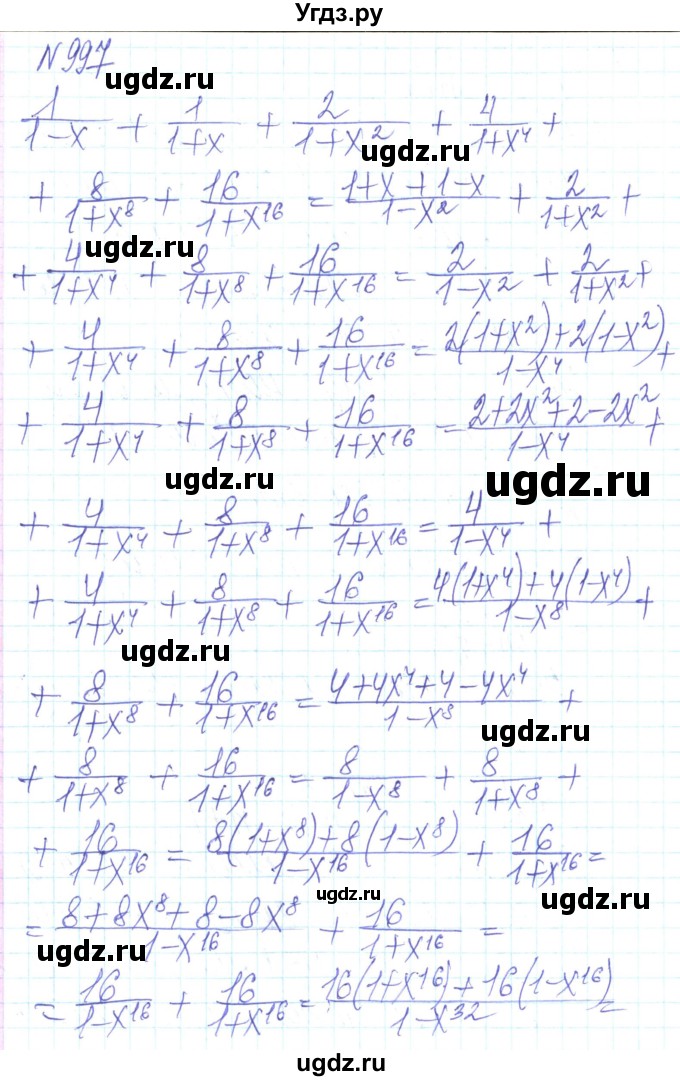 Угдз.ру
№997
ugdz.ru
1/(1-x) + 1/(1+x) + 2/(1+x²) + 4/(1+x⁴) +
ugdz.ru
+ 8/(1+x⁸) + 16/(1+x¹⁶) = (1+x+1-x)/(1-x²) + 2/(1+x²) +
ugdz.ru
+ 4/(1+x⁴) + 8/(1+x⁸) + 16/(1+x¹⁶) = 2/(1-x²) + 2/(1+x²) +
+ 4/(1+x⁴) + 8/(1+x⁸) + 16/(1+x¹⁶) = (2(1+x²)+2(1-x²))/(1-x⁴) +
+ 4/(1+x⁴) + 8/(1+x⁸) + 16/(1+x¹⁶) = (2+2x²+2-2x²)/(1-x⁴) +
ugdz.ru ugdz.ru
+ 4/(1+x⁴) + 8/(1+x⁸) + 16/(1+x¹⁶) = 4/(1-x⁴) +
+ 4/(1+x⁴) + 8/(1+x⁸) + 16/(1+x¹⁶) = (4(1+x⁴)+4(1-x⁴))/(1-x⁸) +
ugdz.ru
+ 8/(1+x⁸) + 16/(1+x¹⁶) = (4+4x⁴+4-4x⁴)/(1-x⁸) +
ugdz.ru
+ 8/(1+x⁸) + 16/(1+x¹⁶) = 8/(1-x⁸) + 8/(1+x⁸) +
+ 16/(1+x¹⁶) = (8(1+x⁸)+8(1-x⁸))/(1-x¹⁶) + 16/(1+x¹⁶) =
ugdz.ru ugdz.ru
= (8+8x⁸+8-8x⁸)/(1-x¹⁶) + 16/(1+x¹⁶) =
ugdz.ru
= 16/(1-x¹⁶) + 16/(1+x¹⁶) = (16(1+x¹⁶)+16(1-x¹⁶))/(1-x³²) =
ugdz.ru